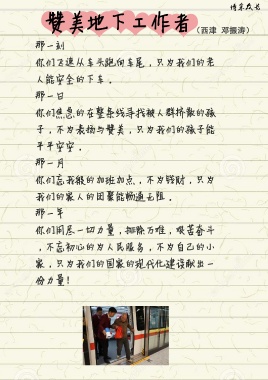 博采众长
赞美地下工作者
（西津 邓振涛）
那一刻
你们飞速从车头跑向车尾，只为我们的老
人能安全的下车。
那一日
你们焦急的在整条线寻找被人群挤散的孩
子，不为表扬与赞美，只为我们的孩子能
平平安安。
那一月
你们忘我般的加班加点，不为钱财，只为
我们的家人的团聚能畅通无阻。
那一年
你们用尽一切力量，排除万难，艰苦奋斗
，不忘初心的为人民服务，不为自己的小
家，只为我们的国家的现代化建设献出一
份力量！